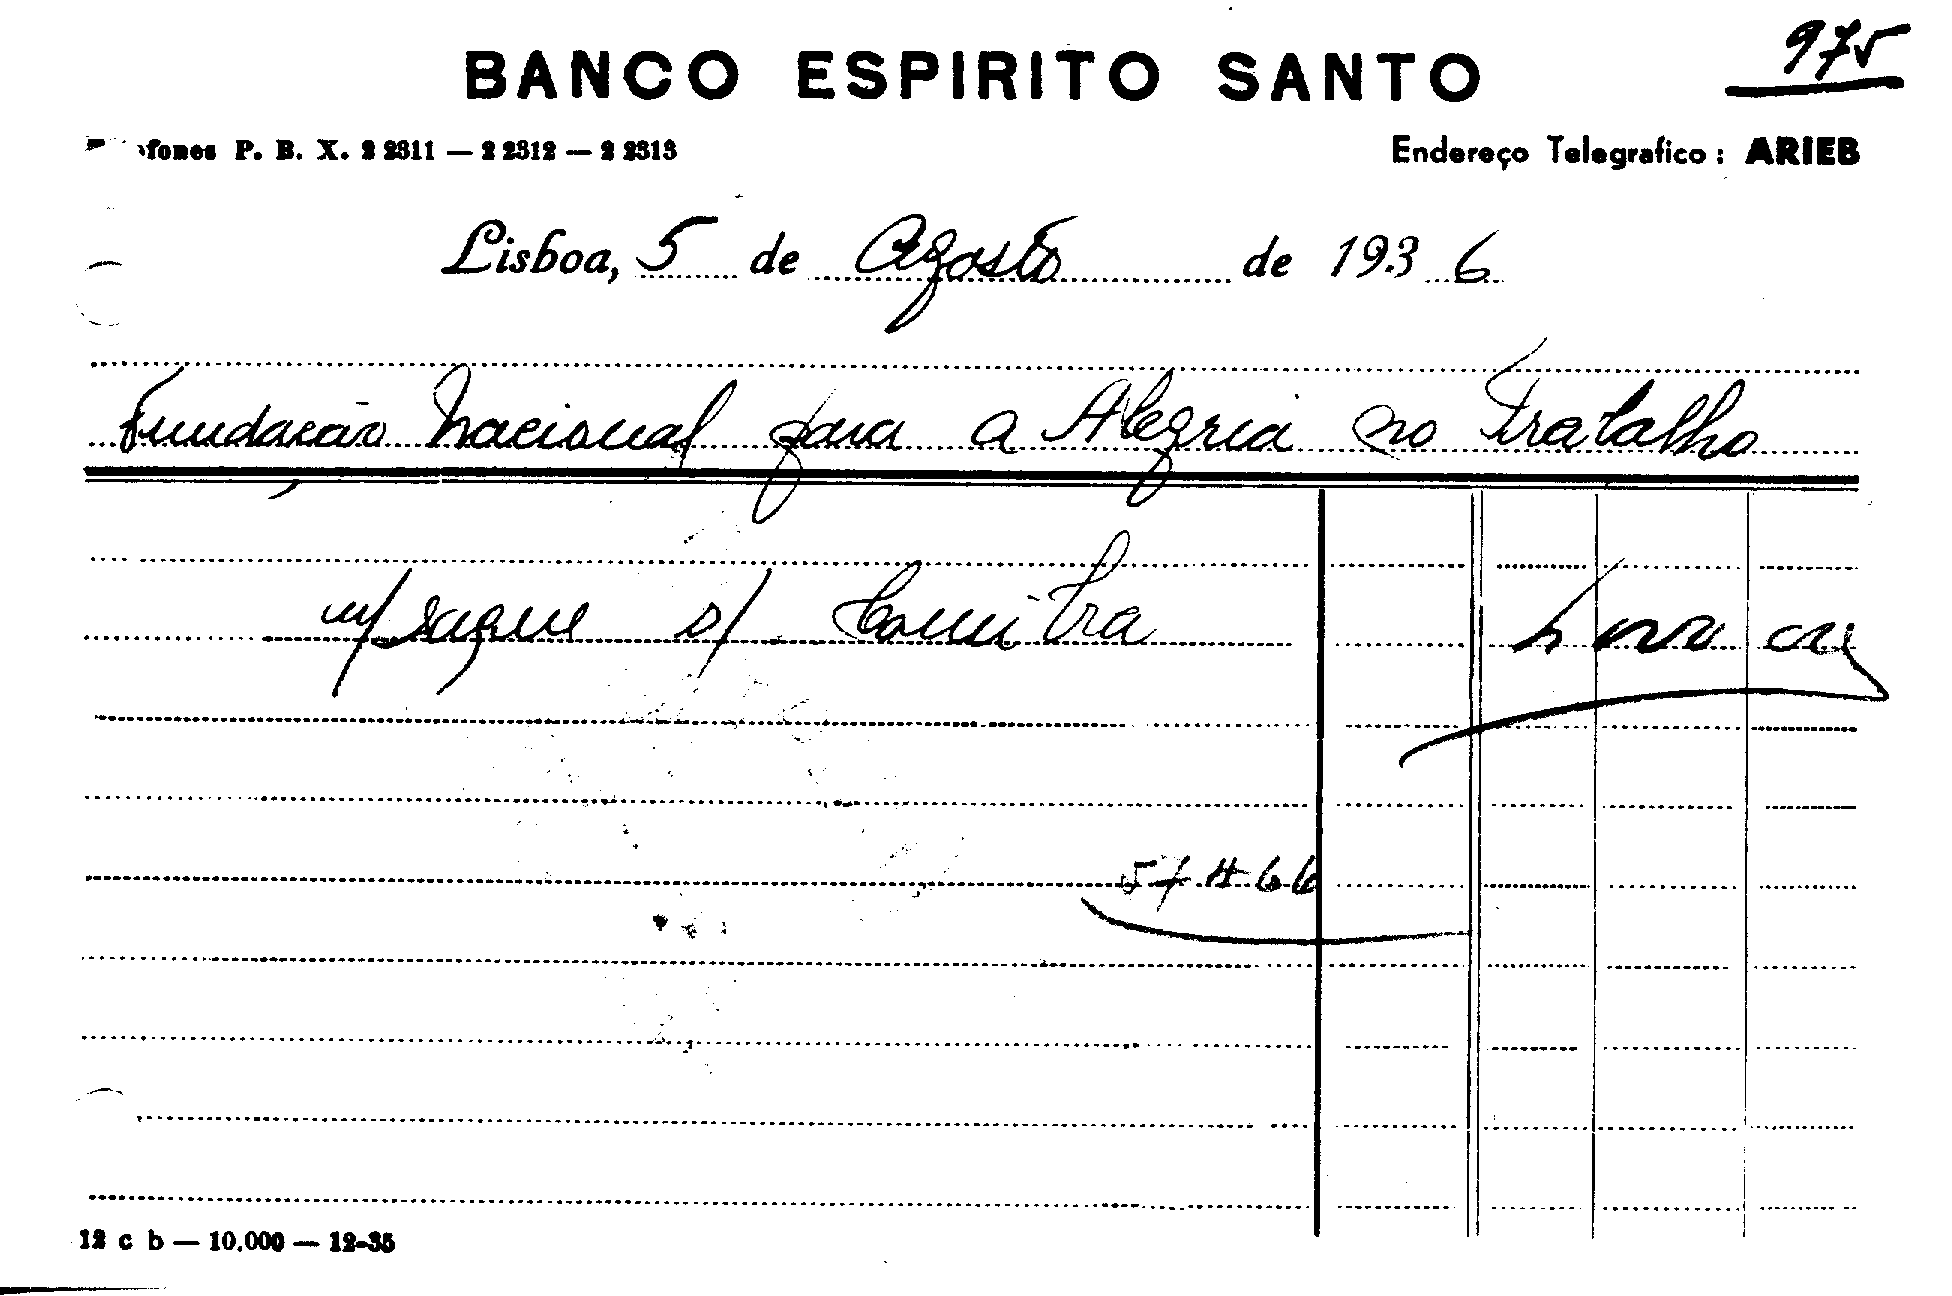 975
BANCO ESPIRITO SANTO
fones P. B. X. 2 2311 — 2 2312 — 2 2313
Endereço Telegrafico : ARIEB
Lisboa, 5 de Agosto de 1936
Fundação Nacional para a Alegria no Trabalho
n/ saque s/ Coimbra
57466
12 c b — 10.000 — 12-35